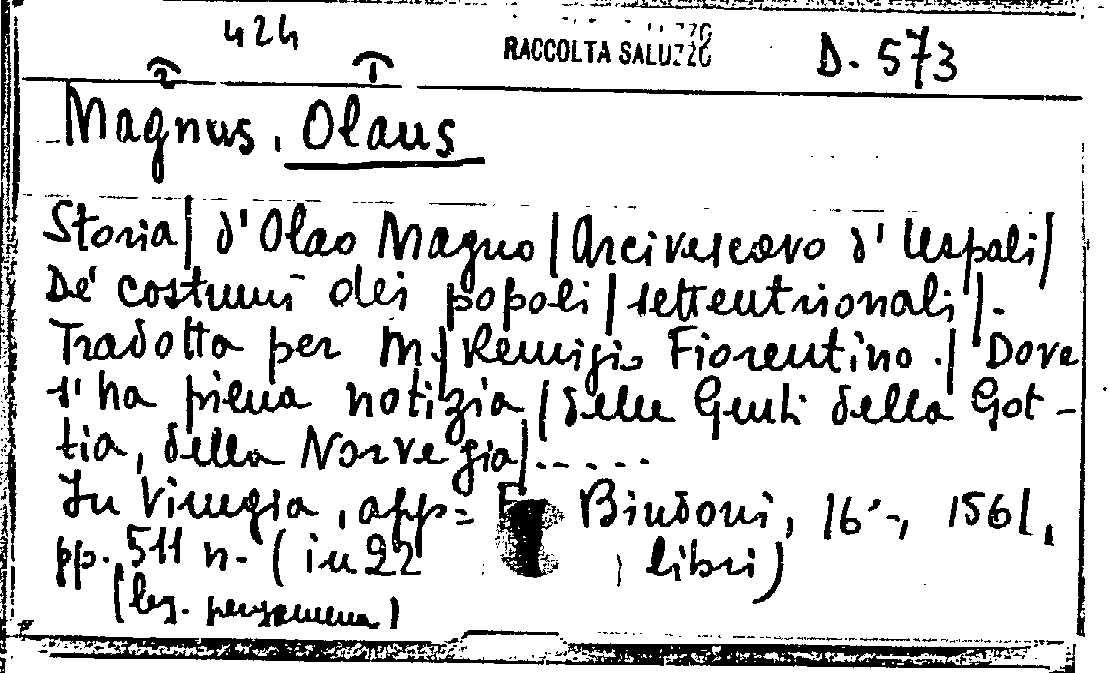 424 RACCOLTA SALUZZO D. 573
2 1
Magnus, Olaus
Storia| d'Olao Magno | Arcivescovo d' Uspali|
De' costumi dei popoli | settentrionali |.
Tradotta per M.| Remigio Fiorentino .| Dove
s'ha piena notizia | delle Genti della Got-
tia, della Norvegia|.....
In Vinegia, app= Bindoni, 16°-, 1561,
pp. 511 n. (in 22 libri)
(leg. pergamena)